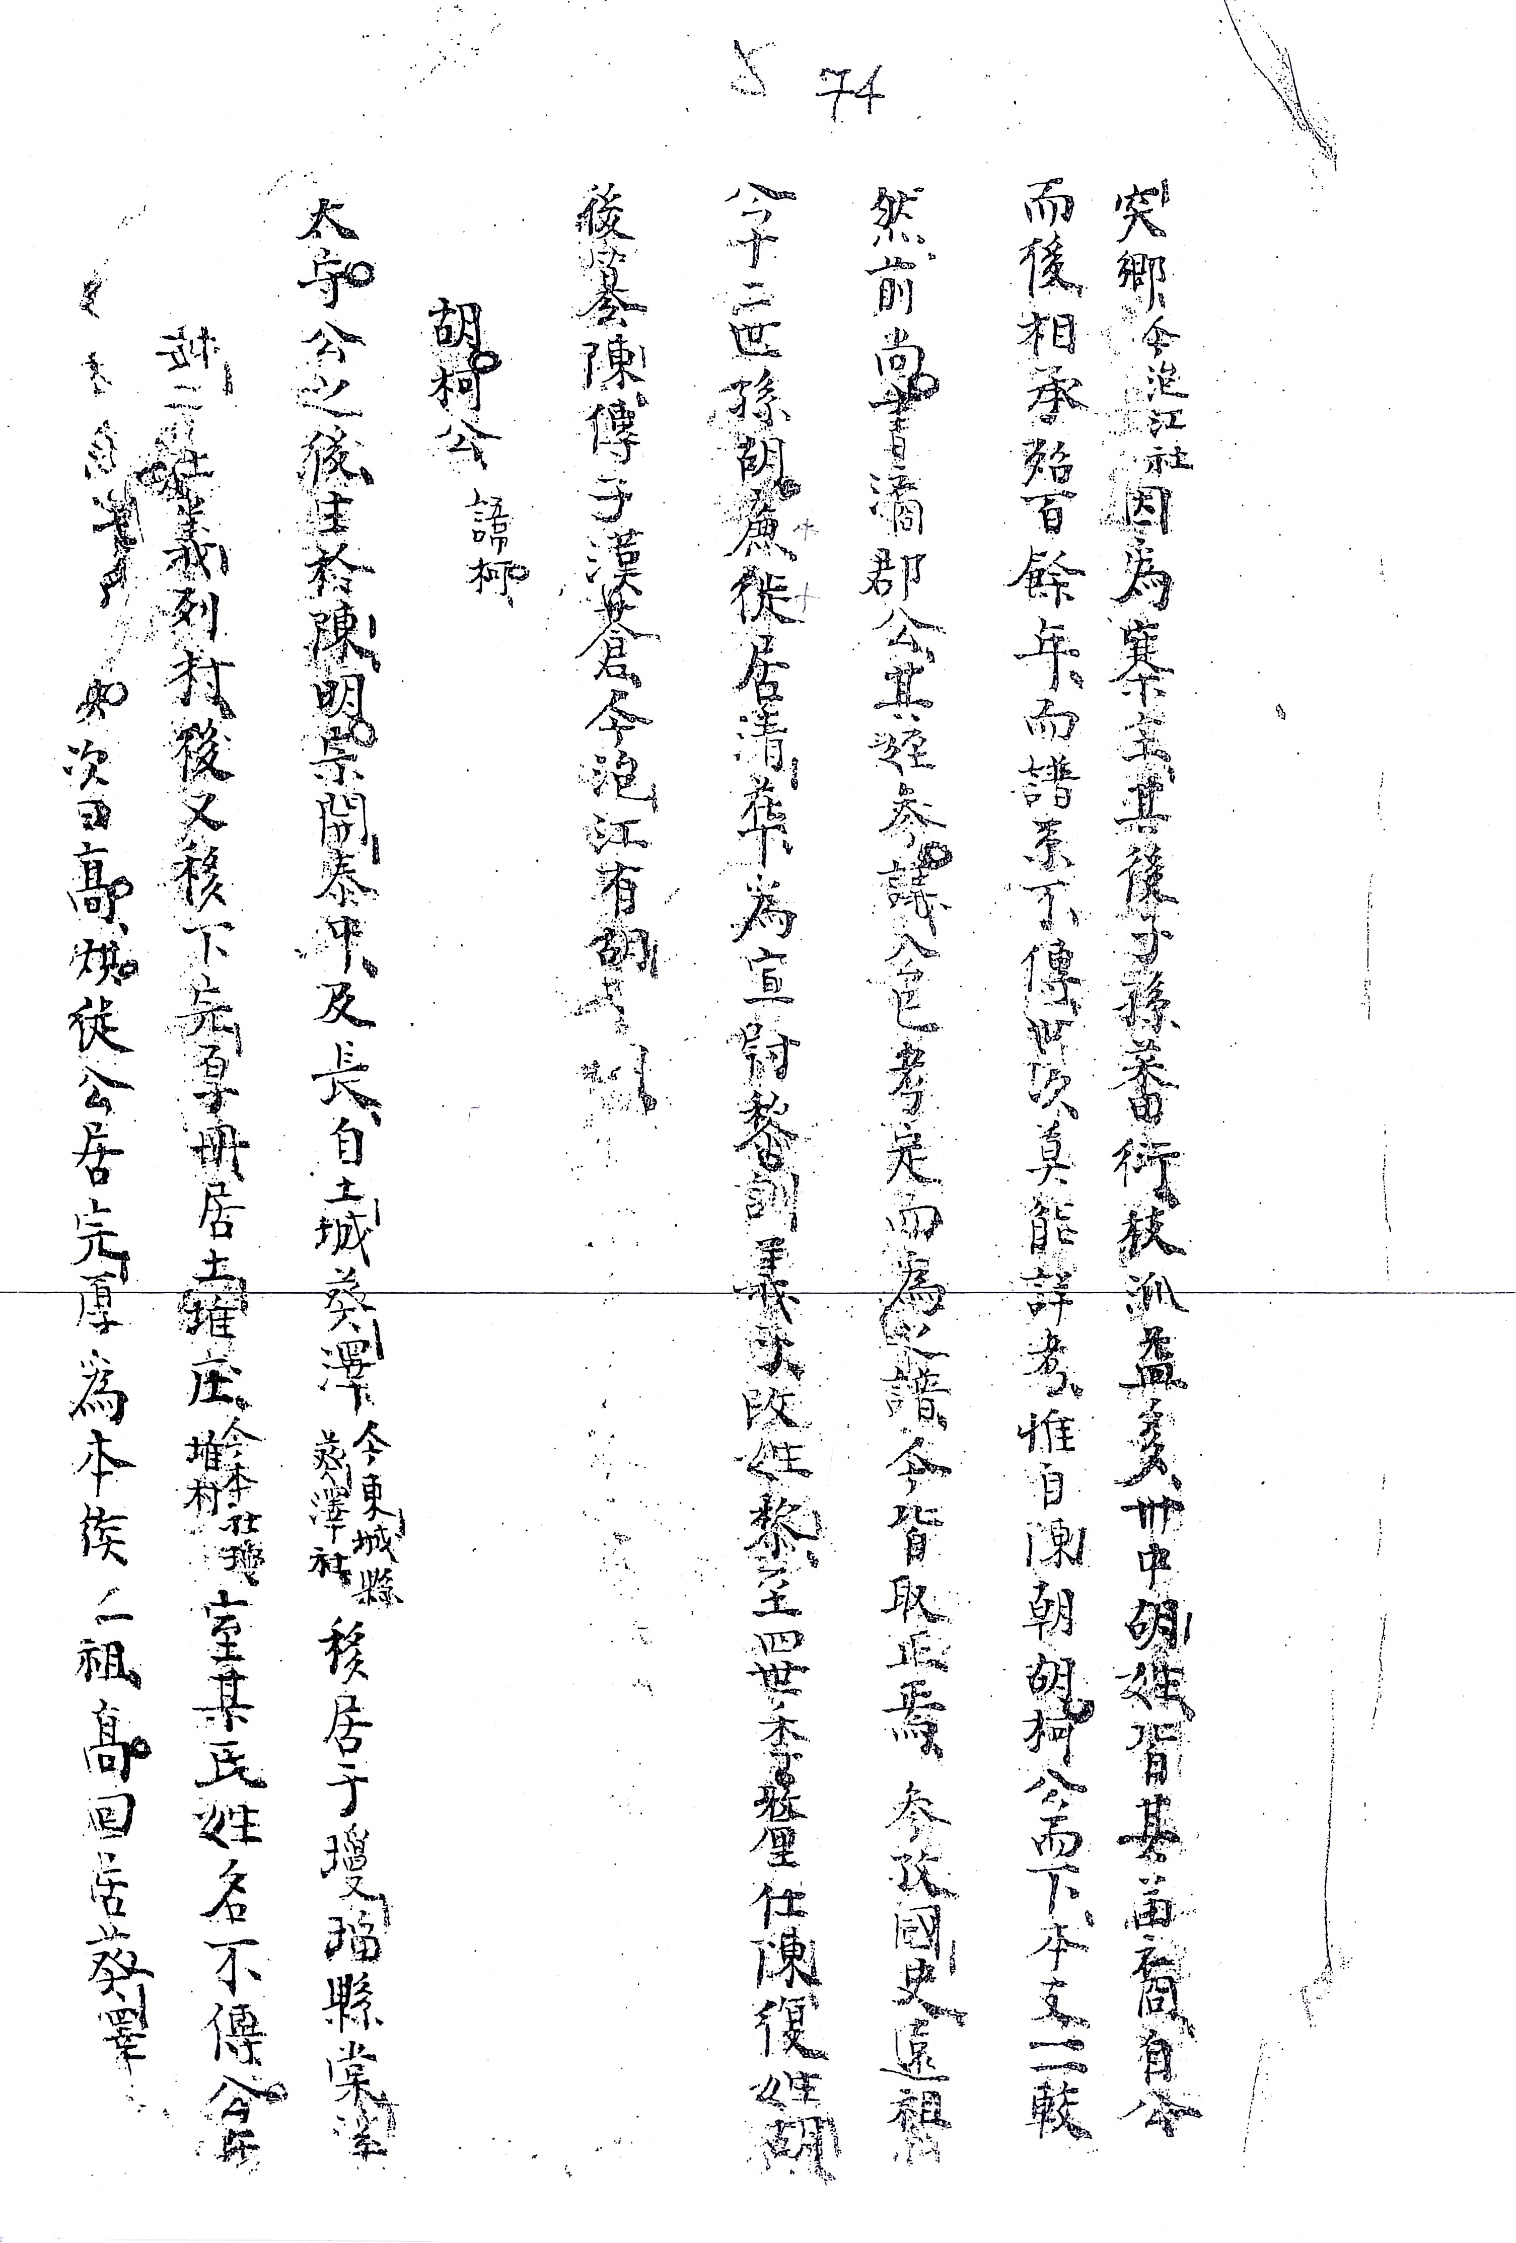 74
突鄉今泡江社因為寨主其後子孫蕃衍枝派益多卅中胡姓皆其苗裔自公
而後相承殆百餘年而譜系不傳世次莫能詳考惟自陳朝胡柯公而下本支二較
然前尚書滴郡公其姪參議公色考定而為之譜今皆取正焉 参攷國史遠祖
公十二世孫胡廉徙居清華為宣尉黎訓義子改姓黎至四世季犛仕陳復姓胡
後篡陳傳子漢蒼今泡江有胡
胡柯公 諱柯
太守公之後生於陳明宗開泰中及長自土城葵澤今東城縣葵澤社移居于瓊瑠縣棠
二社義列村後又移下完厚冊居土堆庄今本社瓊堆村室某氏姓名不傳公
次曰高烘徙公居完厚為本族二祖高回居葵澤